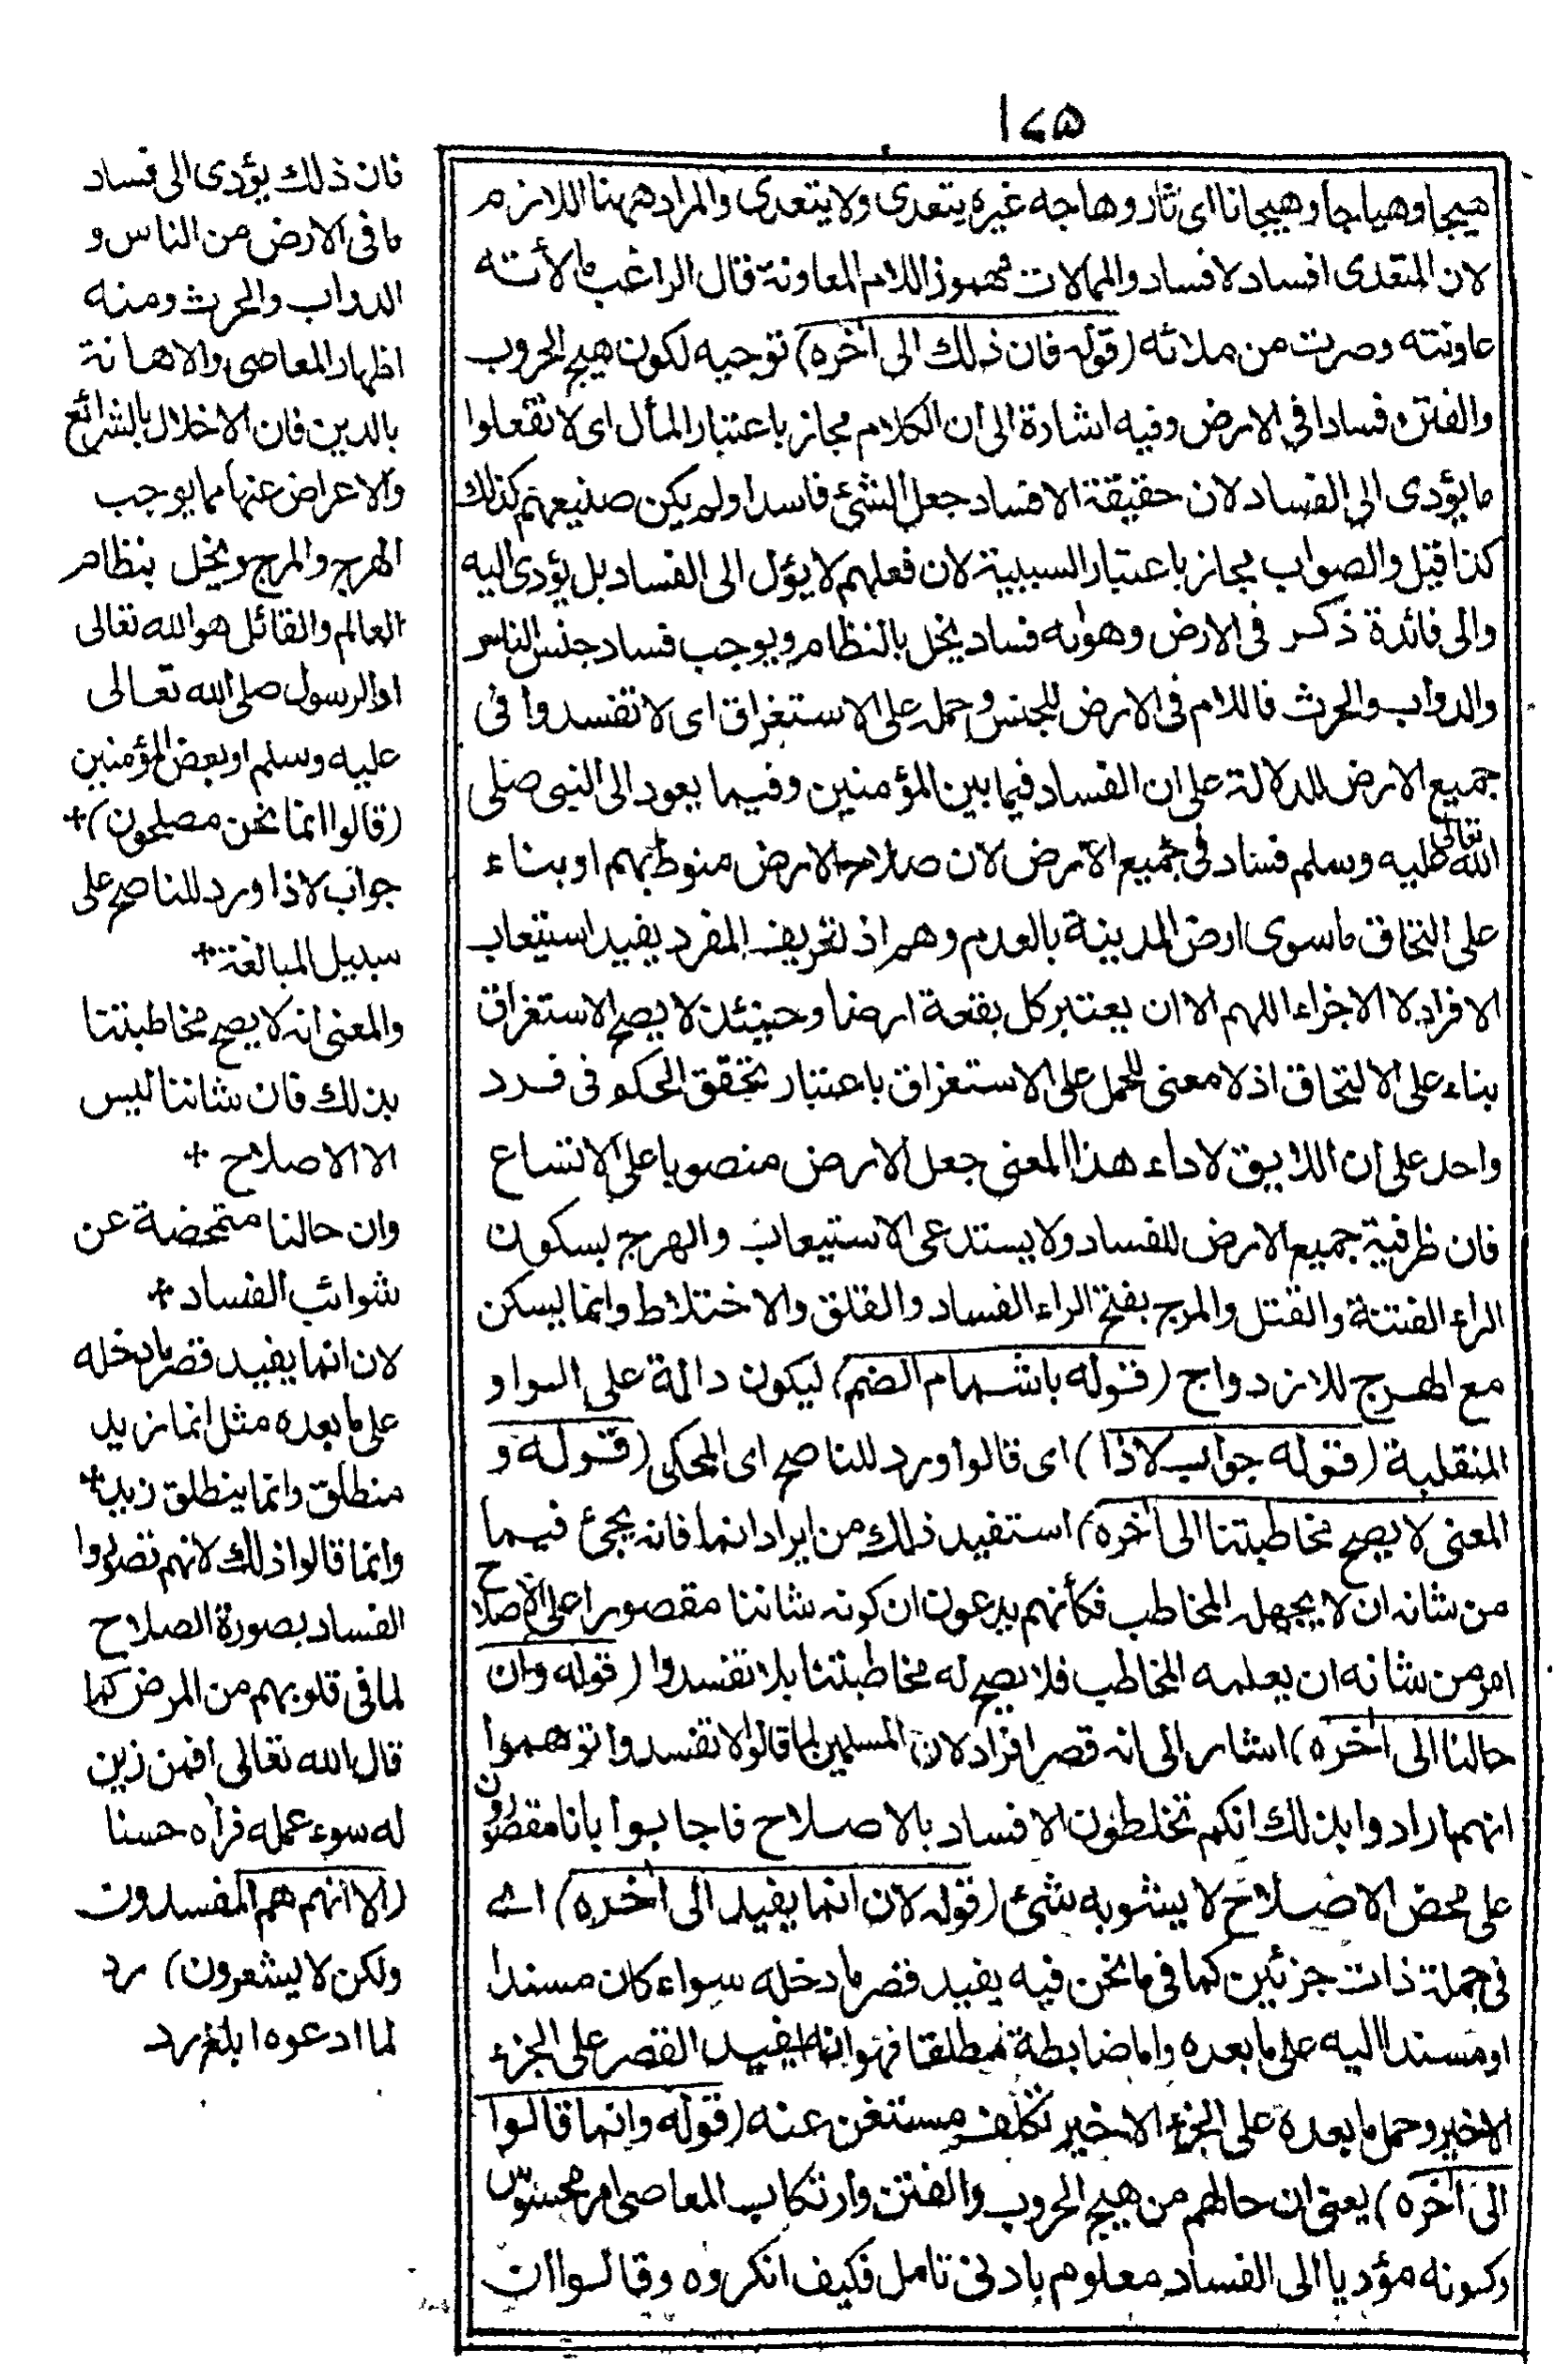 ١٧٥
هيجا وهياجا وهيجانا اى ثار وهاجه غيره يتعدى ولا يتعدى والمراد ههنا اللازم
لان المتعدى افساد لا فساد والممالات مهموز اللام المعاونة قال الراغب مالأته
عاونته وصرت من ملائه (قوله فان ذلك الى اخره) توجيه لكون هيج الحروب
والفتن فسادا فى الارض وفيه اشارة الى ان الكلام مجاز باعتبار المأل اى لا تفعلوا
ما يؤدى الى الفساد لان حقيقة الافساد جعل الشئ فاسدا ولم يكن صنيعهم كذلك
كذا قيل والصواب مجاز باعتبار السببية لان فعلهم لا يؤل الى الفساد بل يؤدى اليه
والى فائدة ذكر فى الارض وهو انه فساد يخل بالنظام ويوجب فساد جنس الناس
والدواب والحرث فاللام فى الارض للجنس وحمله على الاستغراق اى لا تفسدوا فى
جميع الارض للدلالة على ان الفساد فيما بين المؤمنين وفيما يعود الى النبى صلى
الله تعالى عليه وسلم فساد فى جميع الارض لان صلاح الارض منوط بهم او بناء
على التحاق ما سوى ارض المدينة بالعدم وهم اذ تعريف المفرد يفيد استيعاب
الافراد لا الاجزاء اللهم الا ان يعتبر كل بقعة ارضا وحينئذ لا يصح الاستغراق
بناء على الالتحاق اذ لا معنى للحمل على الاستغراق باعتبار تحقق الحكم فى فرد
واحد على ان اللايق لاداء هذا المعنى جعل الارض منصوبا على الاتساع
فان ظرفية جميع الارض للفساد ولا يستدعى الاستيعاب والهرج بسكون
الراء الفتنة والقتل والمرج بفتح الراء الفساد والقلق والاختلاط وانما يسكن
مع الهرج للازدواج (قوله باشمام الضم) ليكون دالة على الواو
المنقلبة (قوله جواب لاذا) اى قالوا ورد للناصح اى المحكى (قوله و
المعنى لا يصح مخاطبتنا الى اخره) استفيد ذلك من ايراد انما فانه يجئ فيما
من شانه ان لا يجهله المخاطب فكأنهم يدعون ان كونه شاننا مقصورا على الاصلاح
امر من شانه ان يعلمه المخاطب فلا يصح له مخاطبتنا بلا تفسدوا (قوله وان
حالنا الى اخره) اشار الى انه قصر افراد لان المسلمين لما قالوا لا تفسدوا توهموا
انهم ارادوا بذلك انكم تخلطون الافساد بالاصلاح فاجابوا بانا مقصورون
على محض الاصلاح لا يشوبه شئ (قوله لان انما يفيد الى اخره) اى
فى جملة ذات جزئين كما فى ما نحن فيه يفيد قصر ما دخله سواء كان مسندا
او مسندا اليه على ما بعده واما ضابطة مطلقا فهو انه يفيد القصر على الجزء
الاخير وحمل ما بعده على الجزء الاخير تكلف مستغن عنه (قوله وانما قالوا
الى اخره) يعنى ان حالهم من هيج الحروب والفتن وارتكاب المعاصى امر محسوس
وكونه مؤديا الى الفساد معلوم بادنى تامل فكيف انكروه وقالوا ان
فان ذلك يؤدى الى فساد
ما فى الارض من الناس و
الدواب والحرث ومنه
اظهار المعاصى والاهانة
بالدين فان الاخلال بالشرائع
والاعراض عنها مما يوجب
الهرج والمرج ويخل بنظام
العالم والقائل هو الله تعالى
او الرسول صلى الله تعالى
عليه وسلم او بعض المؤمنين
(قالوا انما نحن مصلحون)+
جواب لاذا ورد للناصح على
سبيل المبالغة+
والمعنى انه لا يصح مخاطبتنا
بذلك فان شاننا ليس
الا الاصلاح +
وان حالنا متمحضة عن
شوائب الفساد +
لان انما يفيد قصر ما دخله
على ما بعده مثل انما زيد
منطلق وانما ينطلق زيد+
وانما قالوا ذلك لانهم تصوروا
الفساد بصورة الصلاح
لما فى قلوبهم من المرض كما
قال الله تعالى افمن زين
له سوء عمله فراه حسنا
(الا انهم هم المفسدون
ولكن لا يشعرون) رد
لما ادعوه ابلغ رد